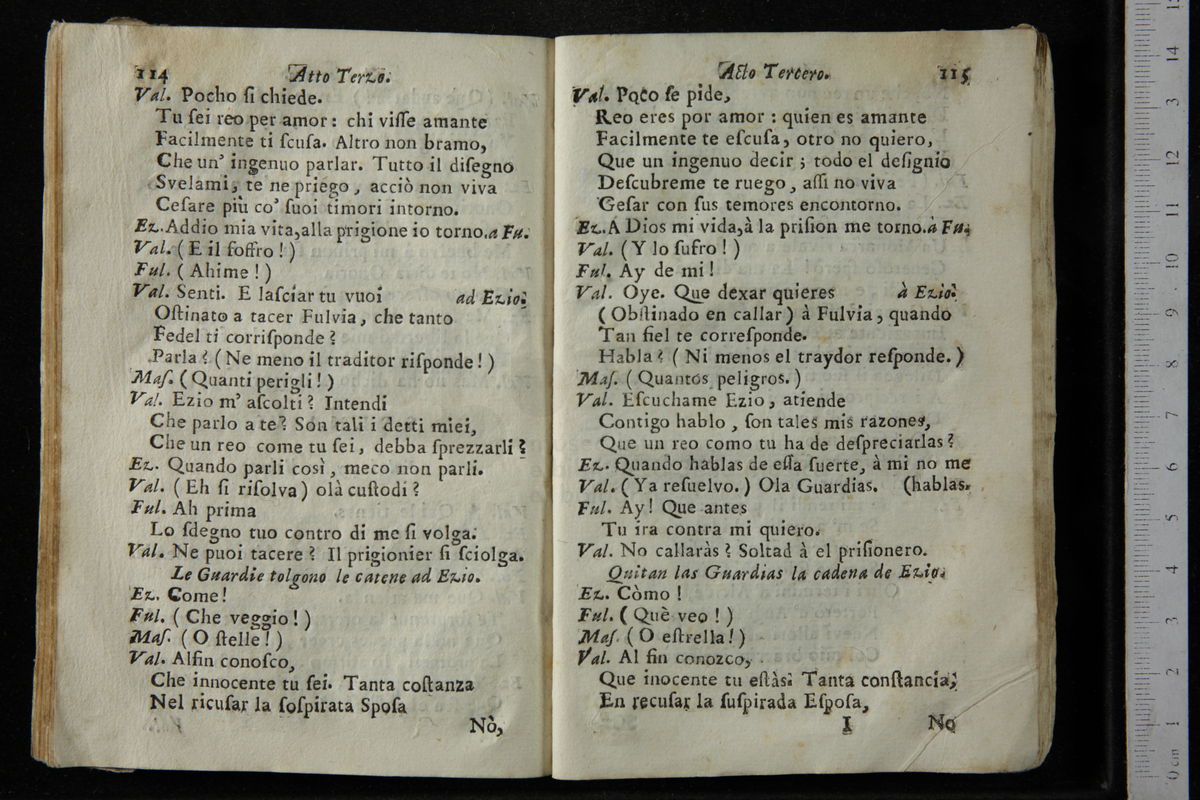 114 Atto Terzo.
Val. Pocho ſi chiede.
Tu ſei reo per amor: chi viſſe amante
Facilmente ti ſcuſa. Altro non bramo,
Che un' ingenuo parlar. Tutto il diſegno
Svelami, te ne priego, acciò non viva
Ceſare più co' ſuoi timori intorno.
Ez. Addio mia vita, alla prigione io torno. a Fu.
Val. (E il ſoffro!)
Ful. (Ahime!)
Val. Senti. E laſciar tu vuoi ad Ezio.
Oſtinato a tacer Fulvia, che tanto
Fedel ti corriſponde?
Parla? (Ne meno il traditor riſponde!)
Maſ. (Quanti perigli!)
Val. Ezio m' aſcolti? Intendi
Che parlo a te? Son tali i detti miei,
Che un reo come tu ſei, debba ſprezzarli?
Ez. Quando parli così, meco non parli.
Val. (Eh ſi riſolva) olà cuſtodi?
Ful. Ah prima
Lo ſdegno tuo contro di me ſi volga.
Val. Ne puoi tacere? Il prigionier ſi ſciolga.
Le Guardie tolgono le catene ad Ezio.
Ez. Come!
Ful. (Che veggio!)
Maſ. (O ſtelle!)
Val. Alfin conoſco,
Che innocente tu ſei. Tanta coſtanza
Nel ricuſar la ſoſpirata Spoſa
Nò,
Acto Tercero. 115
Val. Poco ſe pide,
Reo eres por amor: quien es amante
Facilmente te eſcuſa, otro no quiero,
Que un ingenuo decir; todo el deſignio
Deſcubreme te ruego, aſſi no viva
Geſar con ſus temores encontorno.
Ez. A Dios mi vida, à la priſion me torno. à Fu.
Val. (Y lo ſufro!)
Ful. Ay de mi!
Val. Oye. Que dexar quieres à Ezio.
(Obſtinado en callar) à Fulvia, quando
Tan fiel te correſponde.
Habla? (Ni menos el traydor reſponde.)
Maſ. (Quantos peligros.)
Val. Eſcuchame Ezio, atiende
Contigo hablo, ſon tales mis razones,
Que un reo como tu ha de deſpreciarlas?
Ez. Quando hablas de eſſa ſuerte, à mi no me
Val. (Ya reſuelvo.) Ola Guardias. (hablas.
Ful. Ay! Que antes
Tu ira contra mi quiero.
Val. No callaràs? Soltad à el priſionero.
Quitan las Guardias la cadena de Ezio.
Ez. Còmo!
Ful. (Què veo!)
Maſ. (O eſtrella!)
Val. Al fin conozco,
Que inocente tu eſtàs. Tanta conſtancia,
En recuſar la ſuſpirada Eſpoſa,
I No
0 cm 1 2 3 4 5 6 7 8 9 10 11 12 13 14